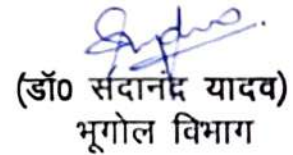 (डॉ0 सदानंद यादव)
भूगोल विभाग